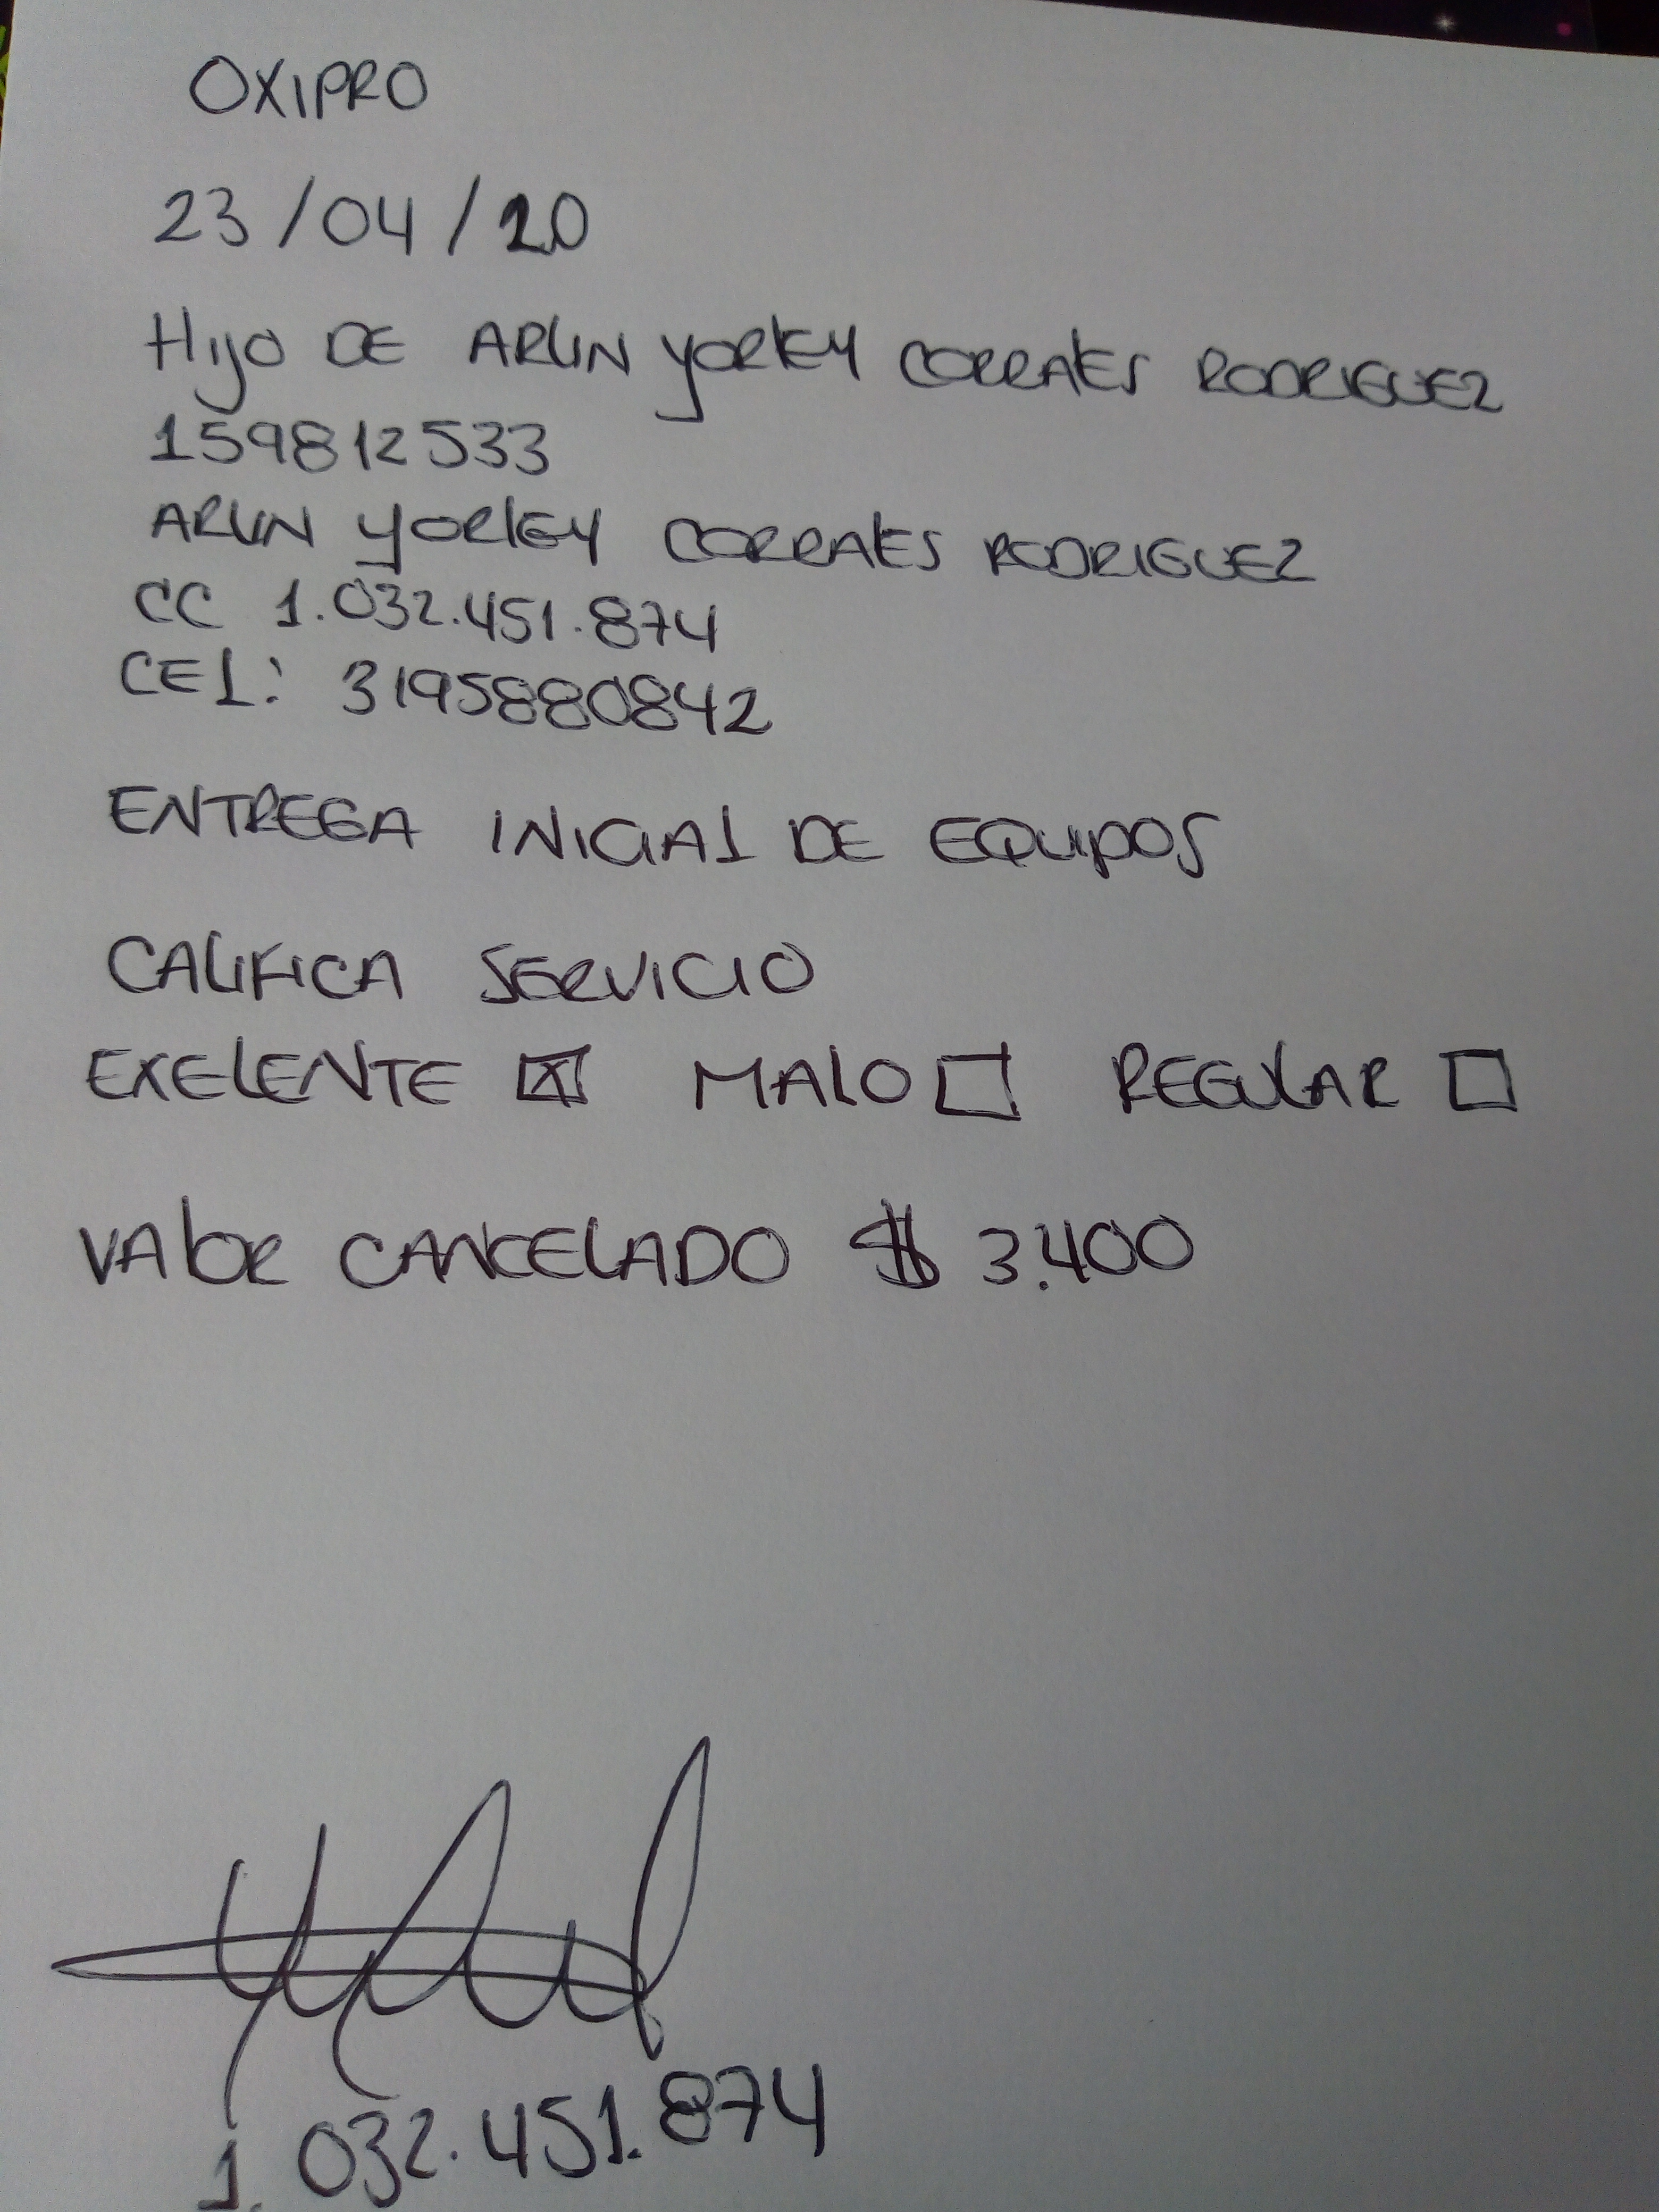 OXIPRO
23/04/20
HIJO DE ARLIN YORLEY CORRALES RODRIGUEZ
159812533
ARLIN YORLEY CORRALES RODRIGUEZ
CC 1.032.451.874
CEL: 3195880842
ENTREGA INICIAL DE EQUIPOS
CALIFICA SERVICIO
EXELENTE X MALO REGULAR
VALOR CANCELADO $ 3.400
1.032.451.874